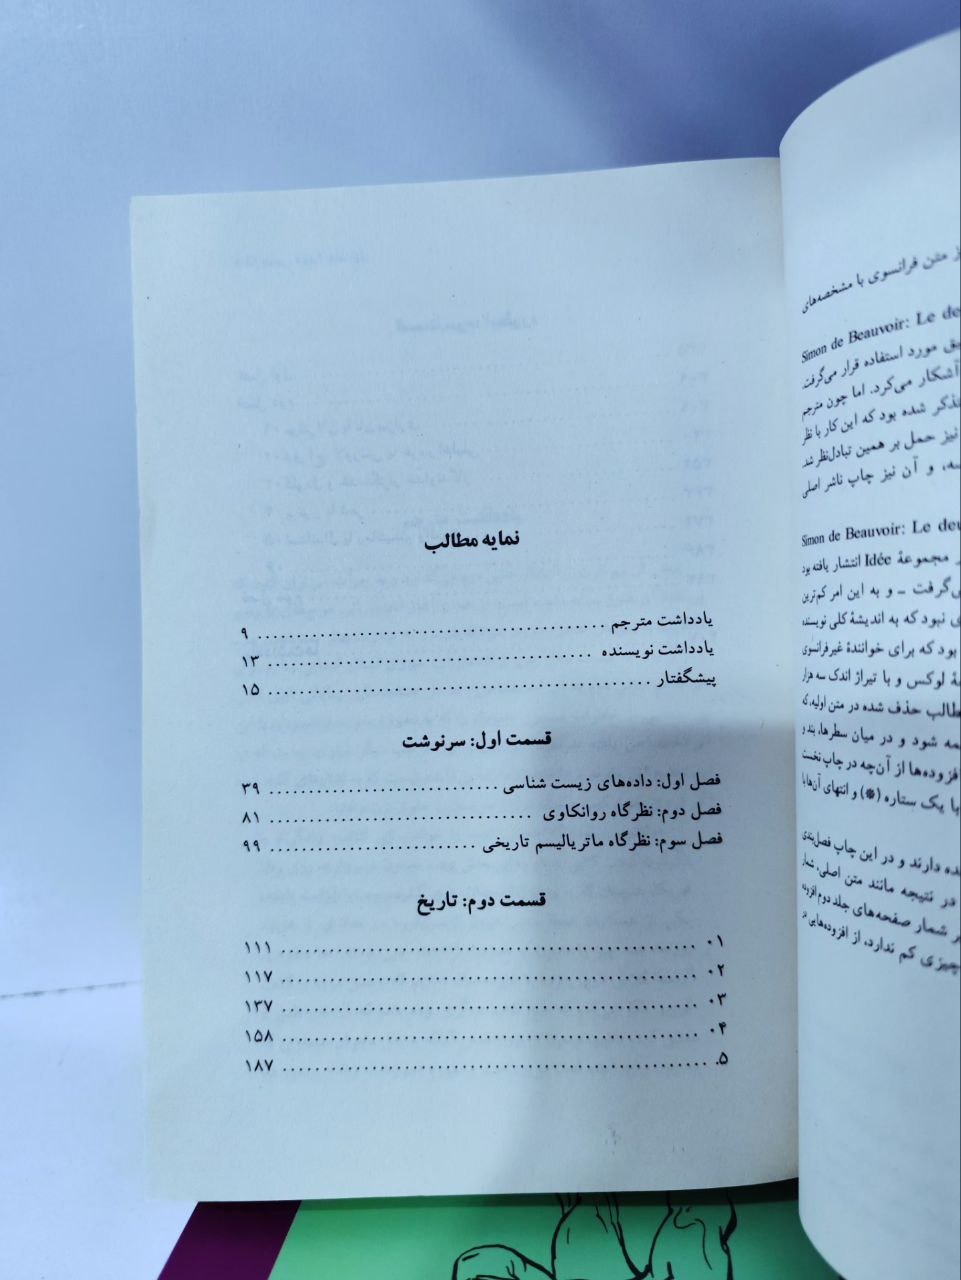 ز متن فرانسوی با مشخصه‌های
Simon de Beauvoir: Le de
یق مورد استفاده قرار می‌گرفت.
آشکار می‌کرد. اما چون مترجم
تذکر شده بود که این کار با نظر
نیز حمل بر همین تبادل‌نظر شد.
سه، و آن نیز چاپ ناشر اصلی
Simon de Beauvoir: Le deu
ر مجموعهٔ Idée انتشار یافته بود
ی‌گرفت ـ و به این امر کم‌ترین
ی نبود که به اندیشهٔ کلی نویسنده
بود که برای خوانندهٔ غیرفرانسوی
ۀ لوکس و با تیراژ اندک سه هزار
طالب حذف شده در متن اولیه، که
مه شود و در میان سطرها، بند و
افزوده‌ها از آن‌چه در چاپ نخست
با یک ستاره (*) و انتهای آن‌ها با
ده دارند و در این چاپ فصل‌بندی
در نتیجه مانند متن اصلی، شمار
ر شمار صفحه‌های جلد دوم افزوده
چیزی کم ندارد، از افزوده‌هایی در
نمایه مطالب
یادداشت مترجم ........................................ ۹
یادداشت نویسنده ........................................ ۱۳
پیشگفتار ........................................ ۱۵
قسمت اول: سرنوشت
فصل اول: داده‌های زیست شناسی ........................................ ۳۹
فصل دوم: نظرگاه روانکاوی ........................................ ۸۱
فصل سوم: نظرگاه ماتریالیسم تاریخی ........................................ ۹۹
قسمت دوم: تاریخ
۰۱ ........................................ ۱۱۱
۰۲ ........................................ ۱۱۷
۰۳ ........................................ ۱۳۷
۰۴ ........................................ ۱۵۸
۵. ........................................ ۱۸۷